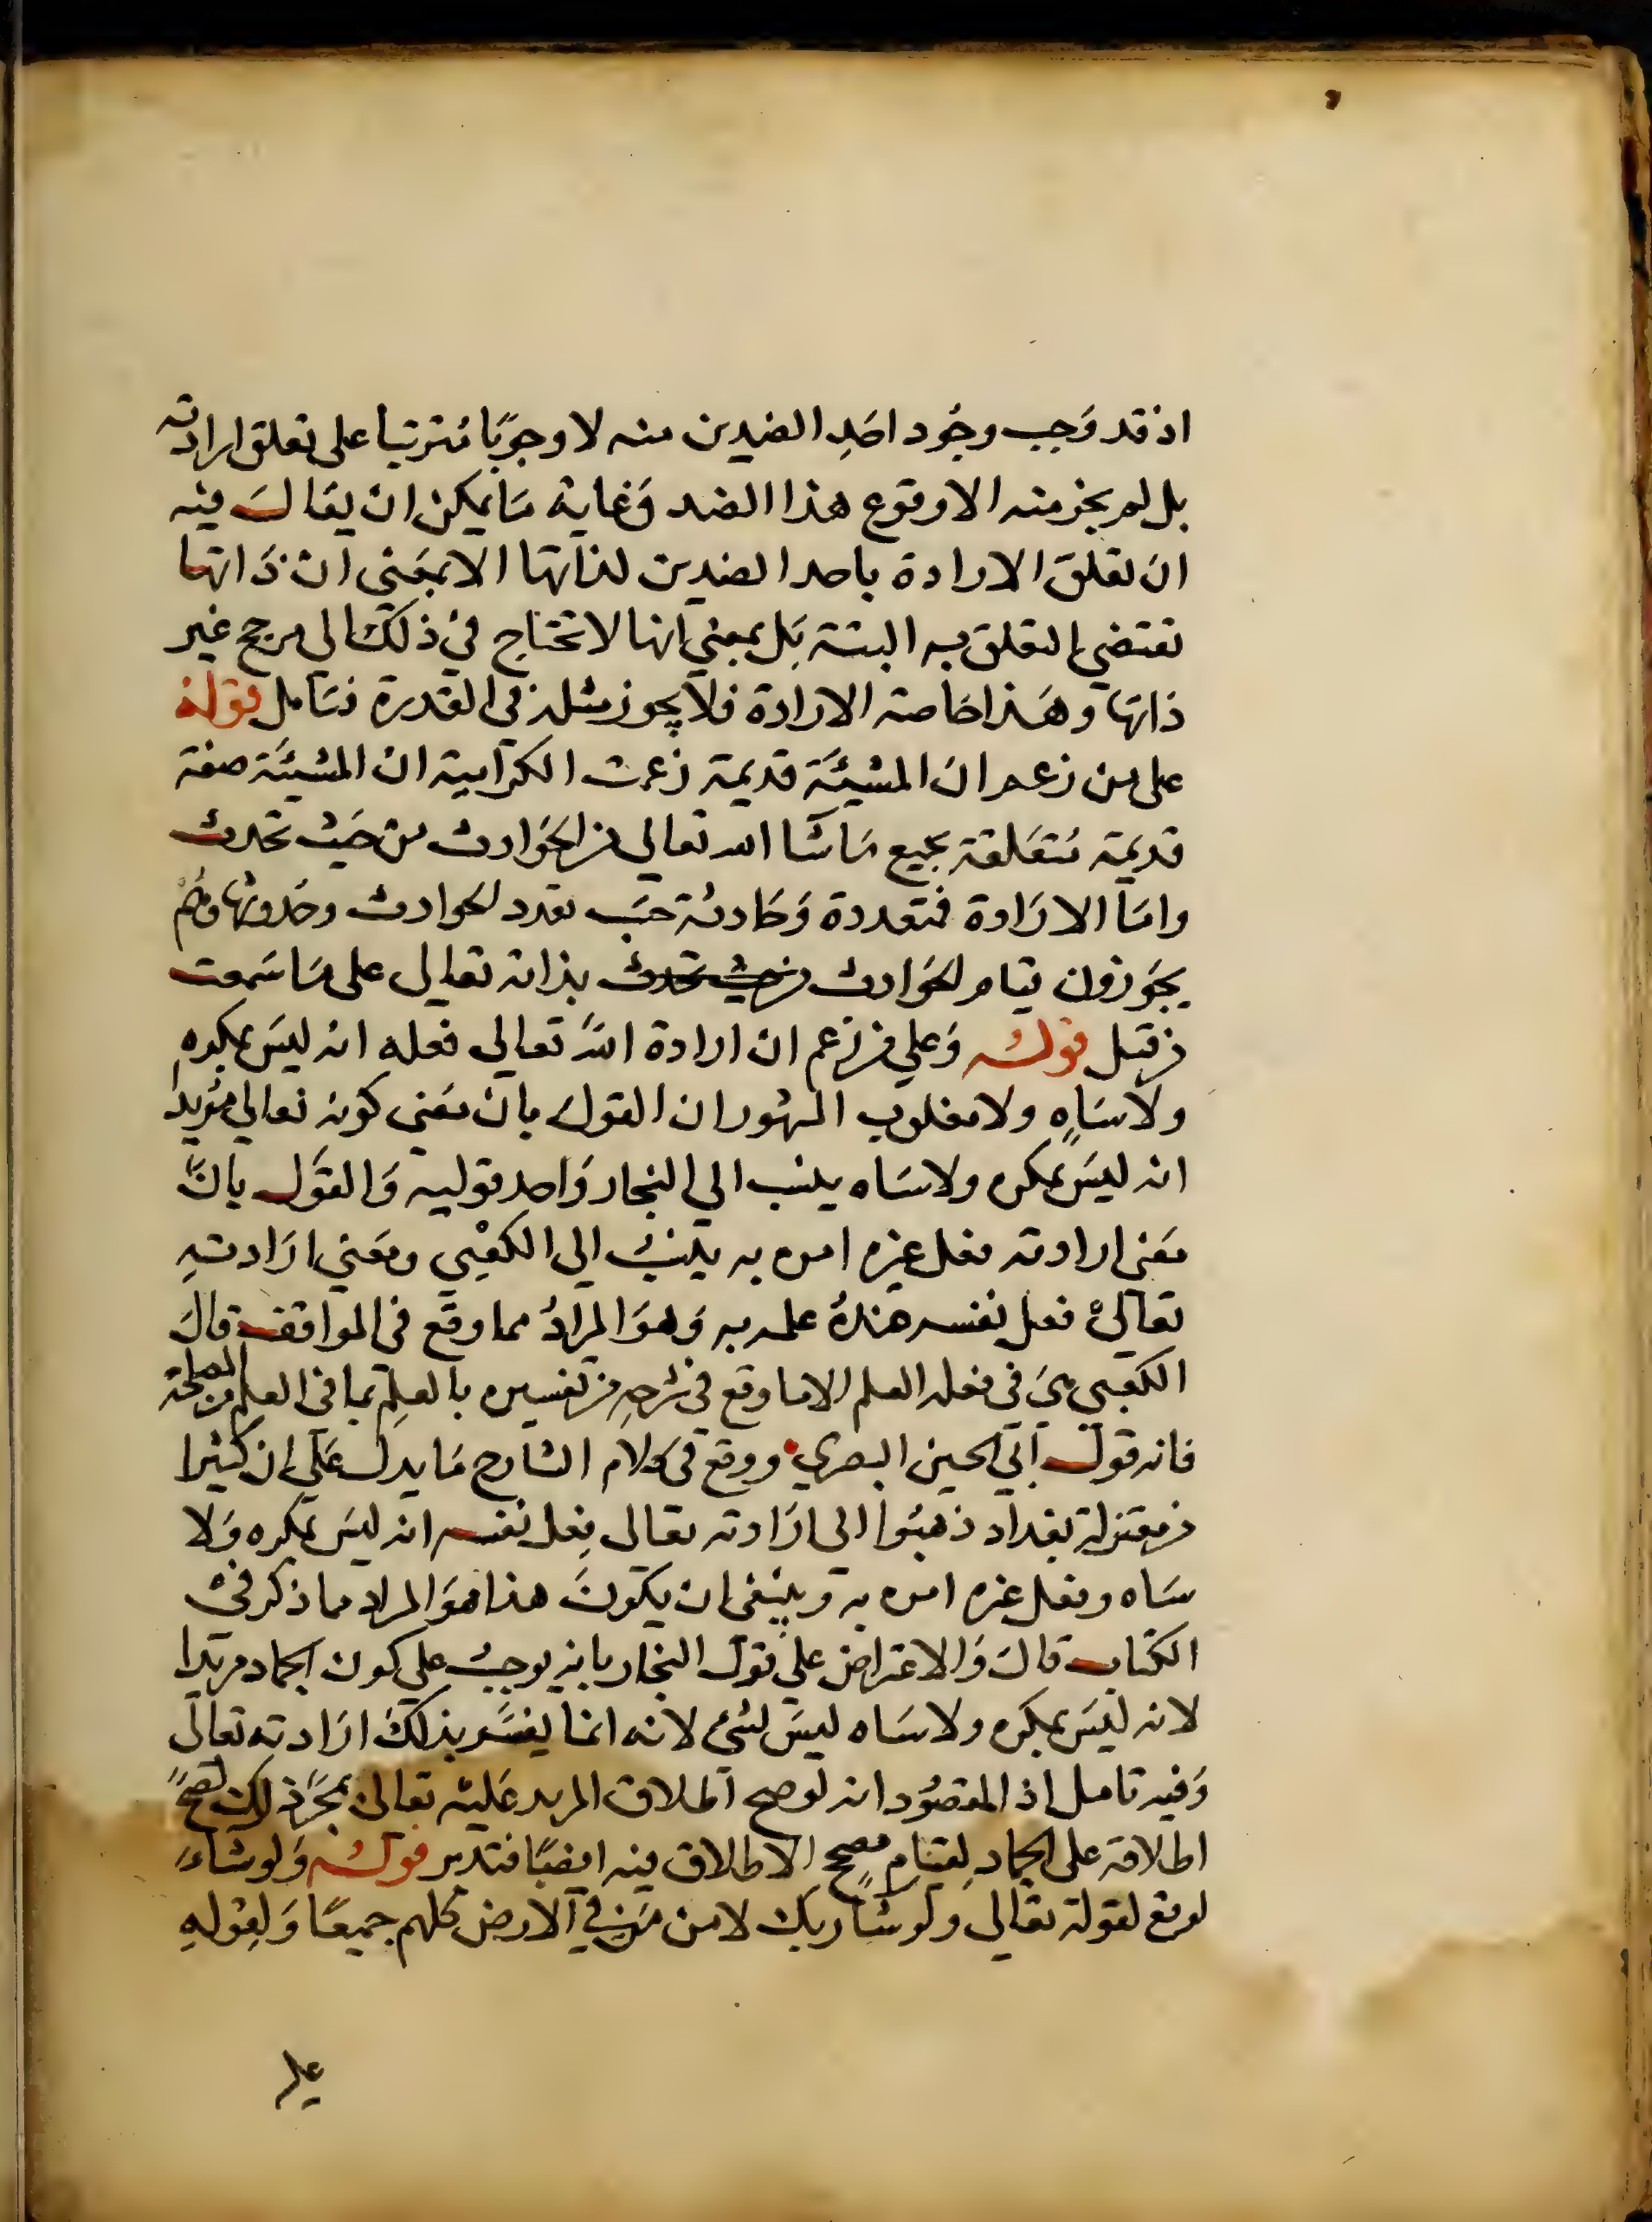 اذ قد وَجب وجُود احَدِ الضدين منه لا وجوبًا مترتبا على تعلق ارادته
بل لم يجز منه الا وقوع هذا الضد وَغاية مَا يمكن ان يقالَ فيه
ان تعلقَ الارادة باحد الضدين لذاتها لا بمعَنى ان ذَاتها
تقتضي التعلق به البتة بَل بمعني انها لا تحتاج في ذلك الي مرجح غير
ذاتها وهَذا خاصة الارادة فلا يجوز مثله في القدرة فتَامل قوله
على من زعم ان المشيئَة قديمة زعمت الكرّامية ان المشيئَة صفة
قديمَة مُتعَلقة بجميع مَا شَا الله تعالي من الحوَادث من حَيث تحدث
وامَا الارَادة فمتعددة وَحَادثة حسَب تعدد الحوادث وحُدوثها وَهُم
يجَوزون قيام الحوَادث من حيث تحدث بذاته تعالى على مَا سَمعت
من قبل قوله وَعلي من زعم ان ارادة اللهَ تعالى فعله انه ليسَ بمكره
ولا سَاهٍ ولا مغلوب المشهور ان القول بان معَنى كونه تعالي مُريدا
انه ليسَ بمكره ولا سَاه ينسب الي النجار وَاحد قوليه وَالقَول بانَّ
معَنى ارادته فعل غيره امره به ينسَبُ الي الكعْبي ومعَني ارَادتهِ
تعَالىْ فعل نفسه هذهُ علمه به وَهوَ المرادُ مما وقع في المواقف قالَ
الكعبي هيَ في فعله العلم لا ما وقع في شرحِه من تفسيره بالعلِم بما في العلم من المصلحة
فانه قول اَبي الحسين البصري ووقع في كلام الشارح مَا يدل علَي ان كثيرا
من معتزلة بغداد ذهبَوا الى ارَادته تعالى فِعل نفسه انه ليسَ بمكره وَلا
سَاه وفعل غيره امره به وينبغى ان يكونَ هذا هوَ المراد مما ذكر فىْ
الكتاب قالَ وَالاعتراض علَى قول النجار بانه يوجبُ علي كون الجماد مريدا
لانه ليسَ بمكره ولا سَاه ليسَ لشئ لانه انما يفسَّر بذلكَ ارَادته تعَالى
وَفيه تامل اذ المقصُود انه لو صح اطلاق المريد عَليْه تعالىْ بمجرَّد ذلك لصحَّ
اطلاقه على الجماد لِقيَامِ مصحح الاطلاق فيه ايضًا فتدبر قوله وَلو شاءَ
لوقع لقوله تعَالى وَلو شَا ربك لامن مَن في الارض كلهم جميعًا وَلقِولهِ